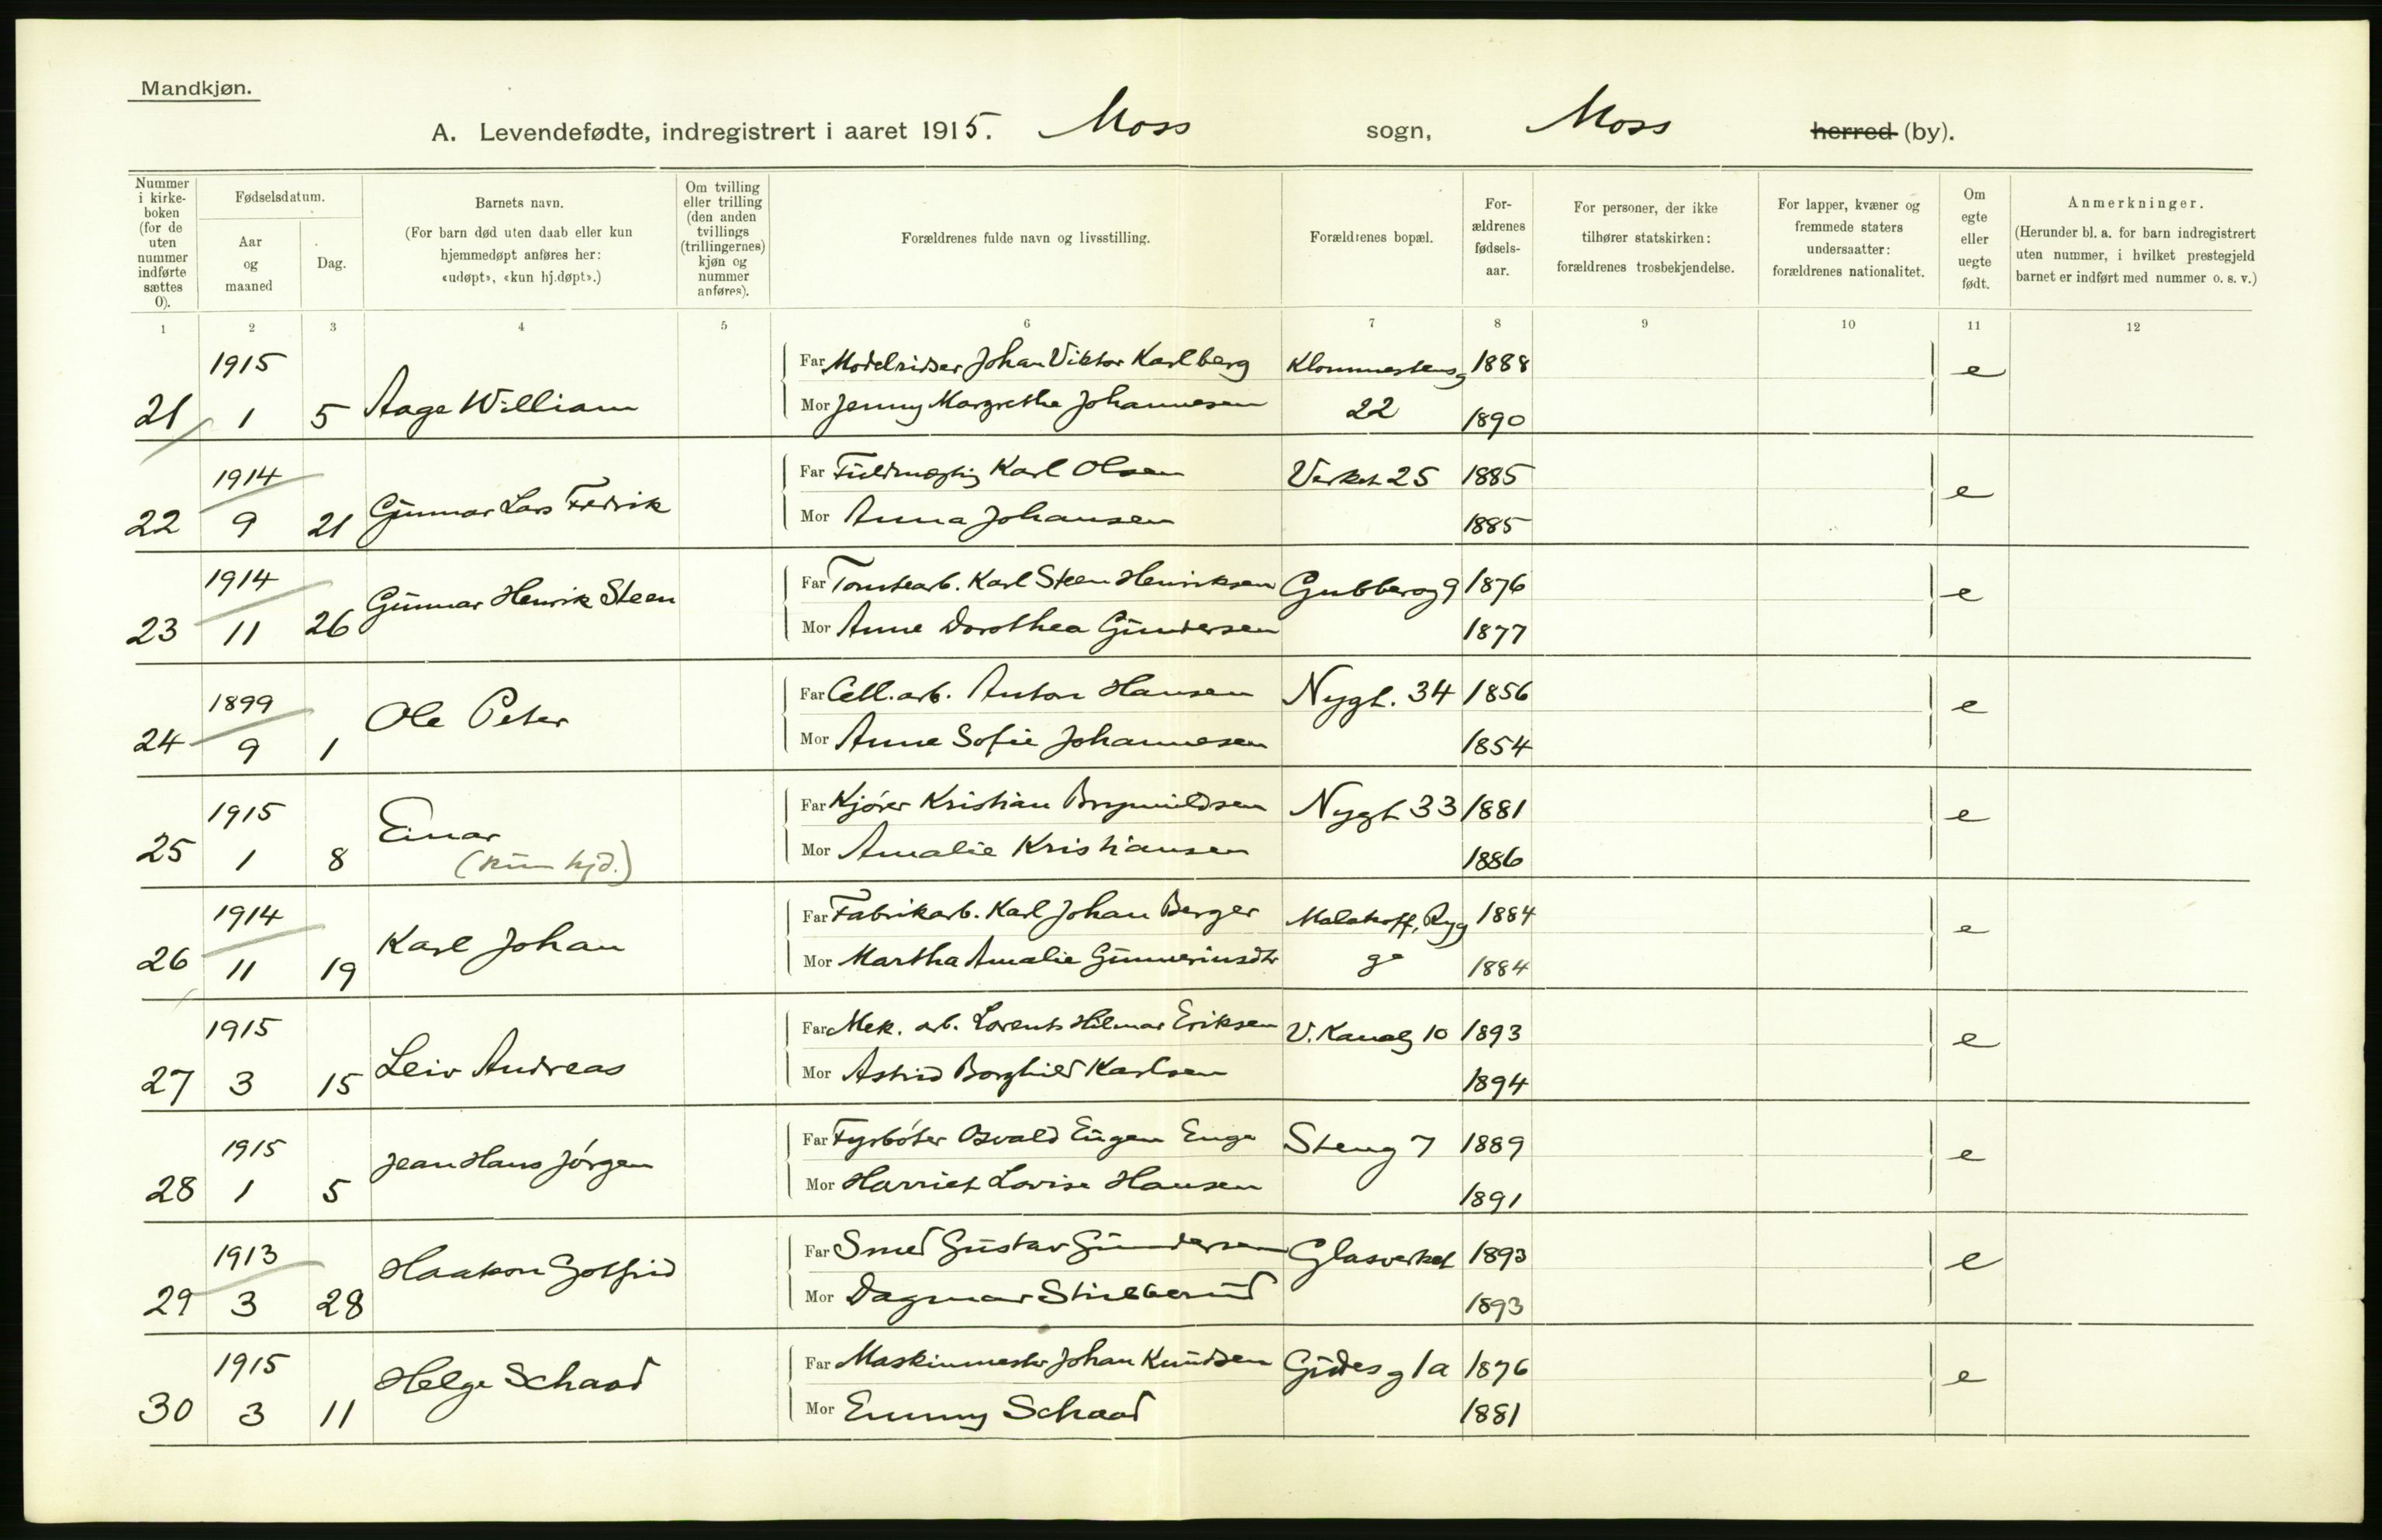 Mandkjøn.
A. Levendefødte, indregistrert i aaret 1915. Moss sogn, Moss herred (by).
Nummer i kirke-boken (for de uten nummer indførte sættes 0).
Fødselsdatum.
Aar og maaned
Dag.
Barnets navn.
(For barn død uten daab eller kun hjemmedøpt anføres her: «udøpt», «kun hj.døpt».)
Om tvilling eller trilling (den anden tvillings (trillingernes) kjøn og nummer anføres).
Forældrenes fulde navn og livsstilling.
Forældrenes bopæl.
For-ældrenes fødsels-aar.
For personer, der ikke tilhører statskirken: forældrenes trosbekjendelse.
For lapper, kvæner og fremmede staters undersaatter: forældrenes nationalitet.
Om egte eller uegte født.
Anmerkninger.
(Herunder bl. a. for barn indregistrert uten nummer, i hvilket prestegjeld barnet er indført med nummer o. s. v.)
1 2 3 4 5 6 7 8 9 10 11 12
1915 Far Modelridser Johan Viktor Karlberg 1888 e
21 1 5 Aage William Mor Jenny Margrethe Johannesen 22 1890
1914 Far Fuldmægtig Karl Olsen Verket 25 1885 e
22 9 21 Gunnar Lars Fredrik Mor Anna Johansen 1885
1914 Far Tomtearb. Karl Steen Henriksen Gubberog 9 1876 e
23 11 26 Gunnar Henrik Steen Mor Anne Dorothea Gundersen 1877
1899 Far Cell.arb. Anton Hansen Nygt. 34 1856 e
24 9 1 Ole Peter Mor Anne Sofie Johannesen 1854
1915 Far Kjører Kristian Nygt 33 1881 e
25 1 8 Einar (kun hjd.) Mor Amalie Kristiansen 1886
1914 Far Fabrikarb. Karl Johan Berger Malakoff, Ryg 1884 e
26 11 19 Karl Johan Mor Martha Amalie Gunneriusdtr ge 1884
1915 Far Mek. arb. Lorents Hilmar Eriksen V. Kanalg 10 1893 e
27 3 15 Leiv Andreas Mor Astrid Borghild Karlsen 1894
1915 Far Fyrbøter Osvald Eugen Enge Steng 7 1889 e
28 1 5 Jean Hans Jørgen Mor Harriet Lovise Hansen 1891
1913 Far Smed Gustav Gundersen Glasverket 1893 e
29 3 28 Haakon Gotfrid Mor Dagmar 1893
1915 Far Maskinmester Johan Knudsen Gudes g 1a 1876 e
30 3 11 Helge Schaad Mor Emmy Schaad 1881